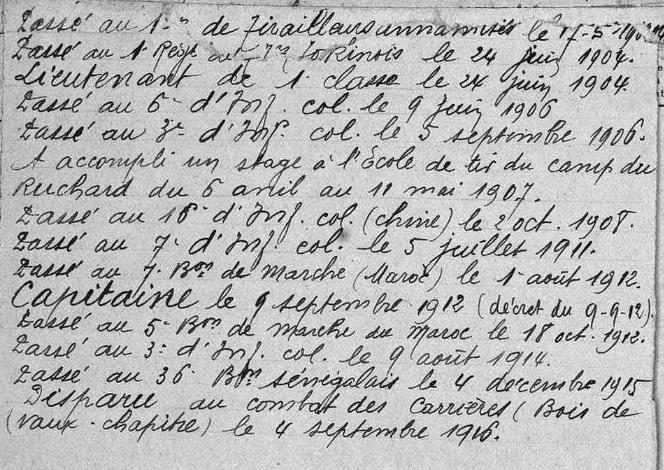 Passé au 1er de Tirailleurs annamites le 17-5-
Passé au 1er Régt de Trs Tonkinois le 24 juin 1904.
Lieutenant de 1e classe le 24 juin 1904.
Passé au 6e d'Inf. col. le 9 juin 1906
Passé au 3e d'Inf. col. le 5 septembre 1906.
A accompli un stage à l'Ecole de tir du camp du
Ruchard du 6 avril au 11 mai 1907.
Passé au 16e d'Inf. col. (Chine) le 2 oct. 1908.
Passé au 7e d'Inf. col. le 5 juillet 1911.
Passé au 7e Bon de Marche (Maroc) le 1er août 1912.
Capitaine le 9 septembre 1912 (décret du 9-9-12).
Passé au 5e Bon de Marche du Maroc le 18 oct. 1912.
Passé au 3e d'Inf. col. le 9 août 1914.
Passé au 36e Bon Sénégalais le 4 décembre 1915
Disparu au combat des Carrières (Bois de
(Vaux-chapitre) le 4 septembre 1916.